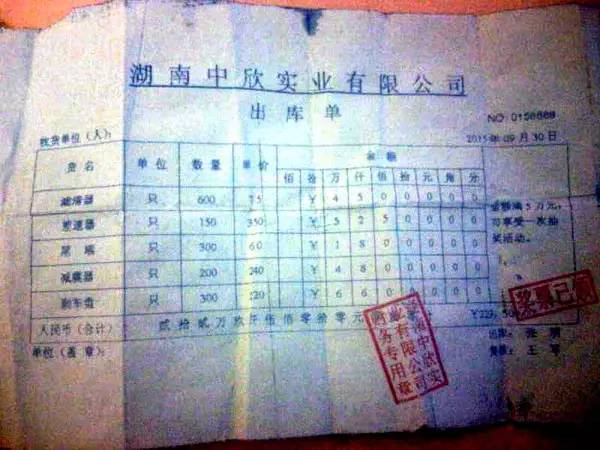 湖南中欣实业有限公司
出库单
NO 0156669
收货单位（人）： 2015年09月30日
货名 单位 数量 单价 金额
佰 拾 万 仟 佰 拾 元 角 分
滤清器 只 600 75 ¥ 4 5 0 0 0 0 0
差速器 只 150 350 ¥ 5 2 5 0 0 0 0
尾 只 300 60 ¥ 1 8 0 0 0 0 0
减震器 只 200 240 ¥ 4 8 0 0 0 0 0
刹车盘 只 300 220 ¥ 6 6 0 0 0 0 0
金额满5万元，
可享受一次抽
奖活动。
奖票已领
人民币（合计） 贰拾贰万玖仟伍佰零拾零元 ¥229,50
单位（盖章）： 出库：张
王军
湖南中欣实业有限公司商务专用章